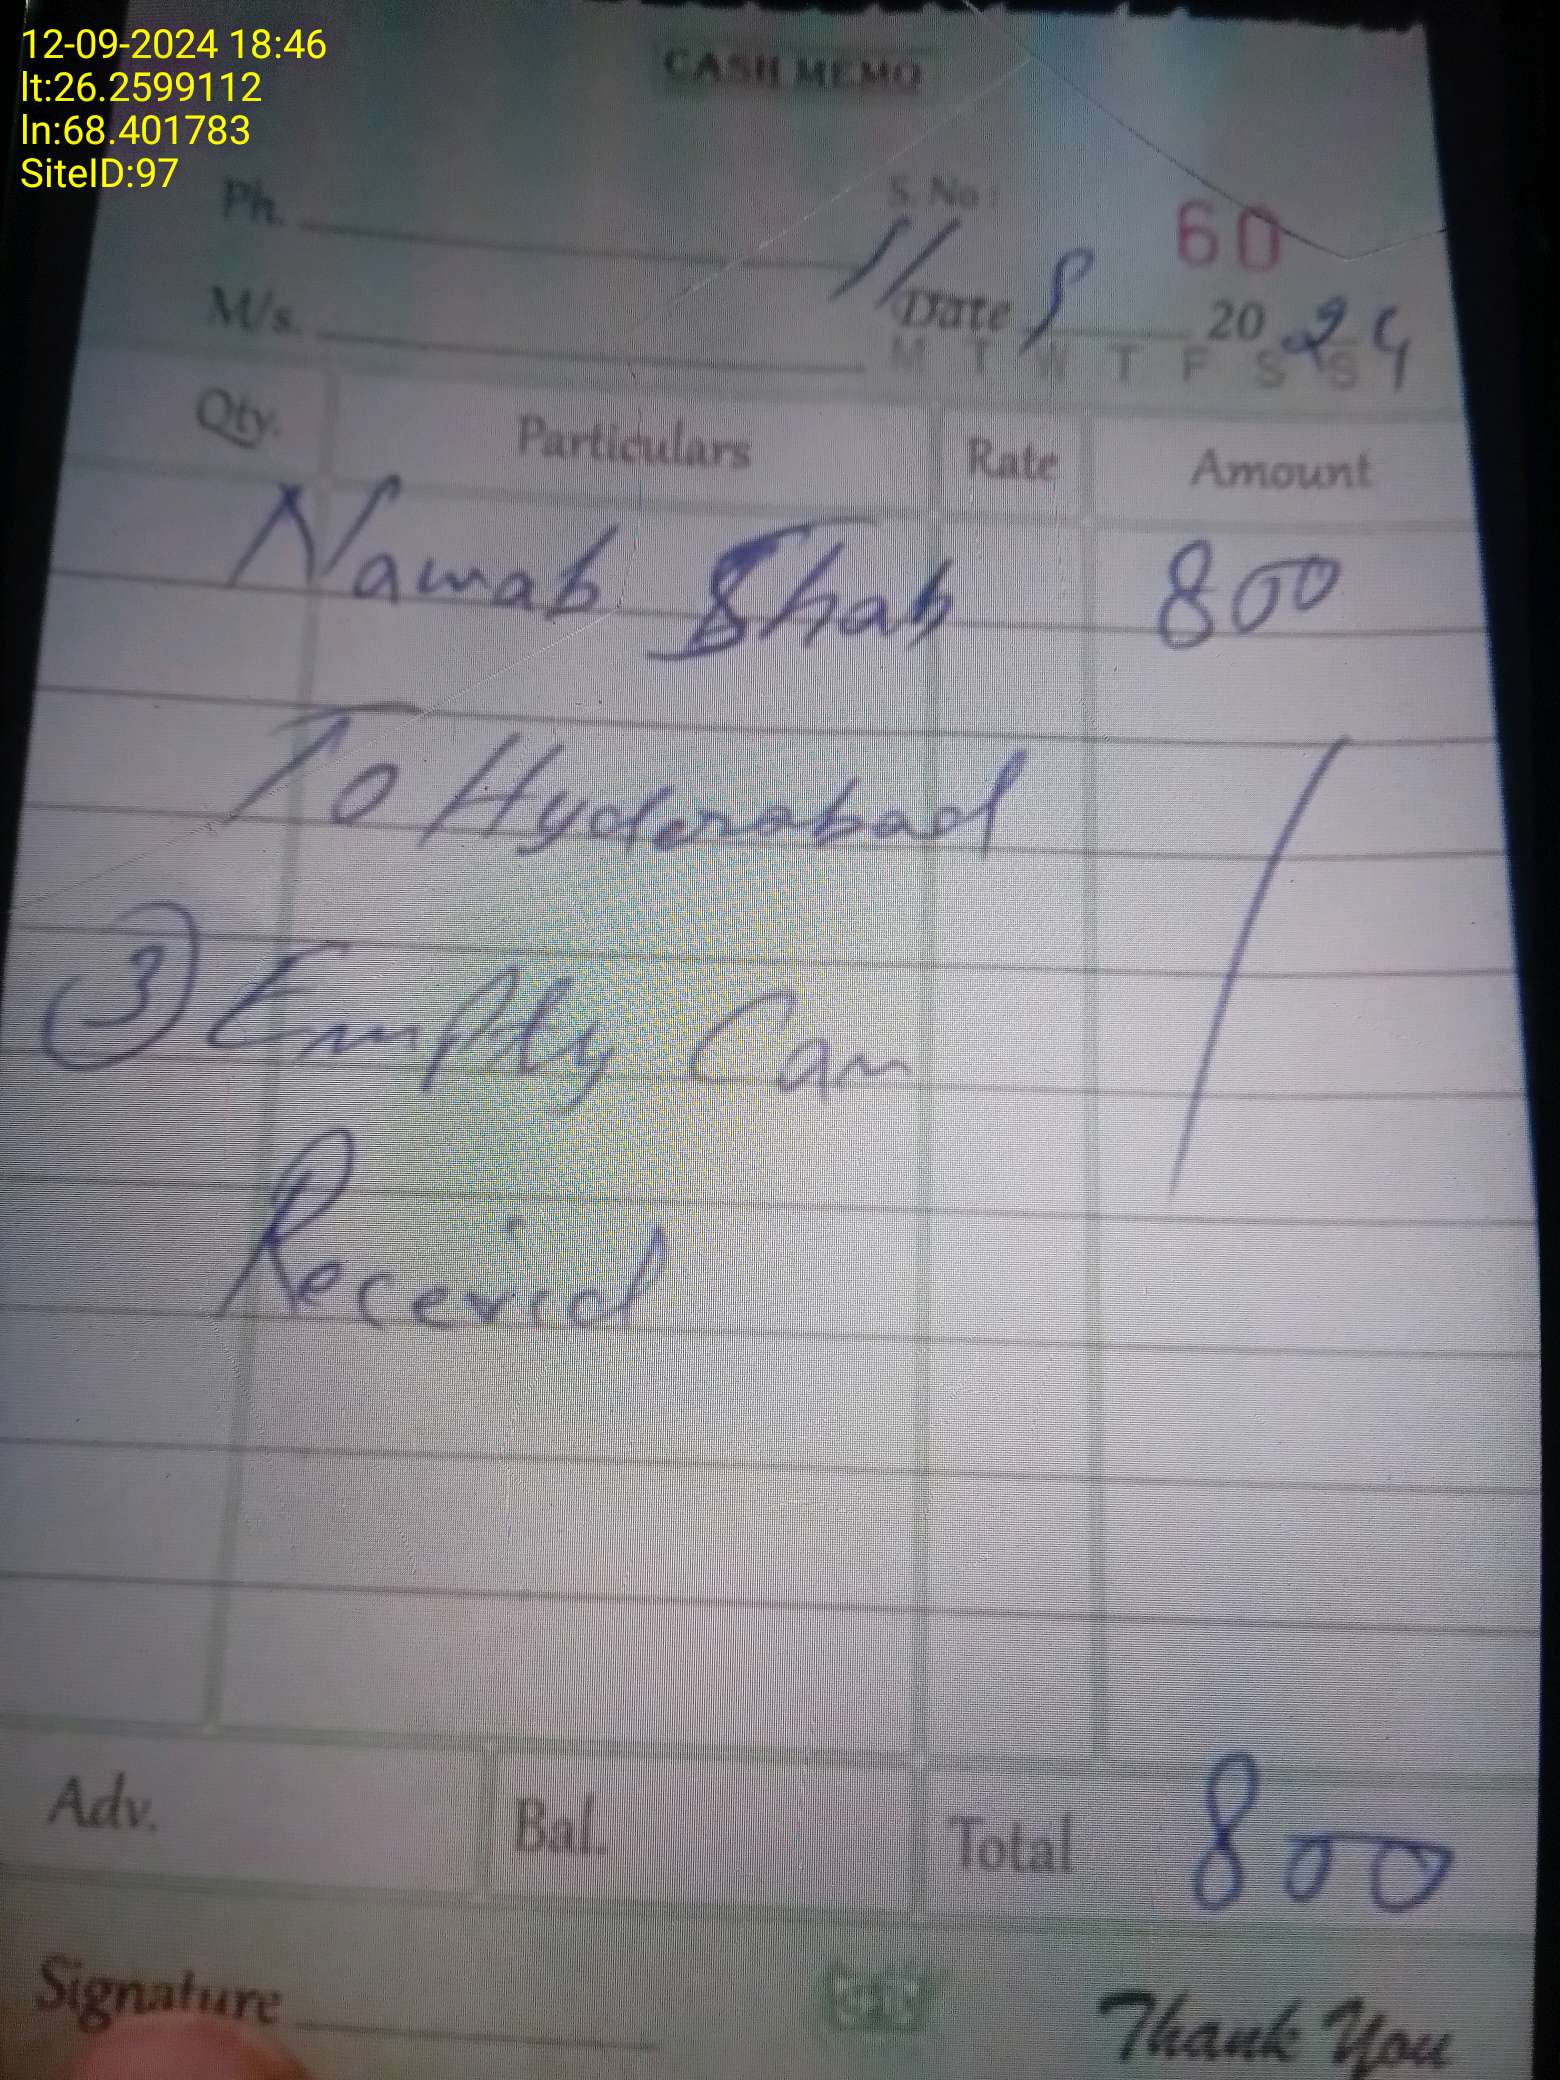 12-09-2024 18:46
lt:26.2599112
ln:68.401783
SiteID:97
CASH MEMO
Ph.
S. No :
60
M/s.
Date
20 24
M T W T F S S
Qty. Particulars Rate Amount
Nawab Shah 800
To Hyderabad
3 Empty Can
Recevied
Adv. Bal. Total 800
Signature
Thank You